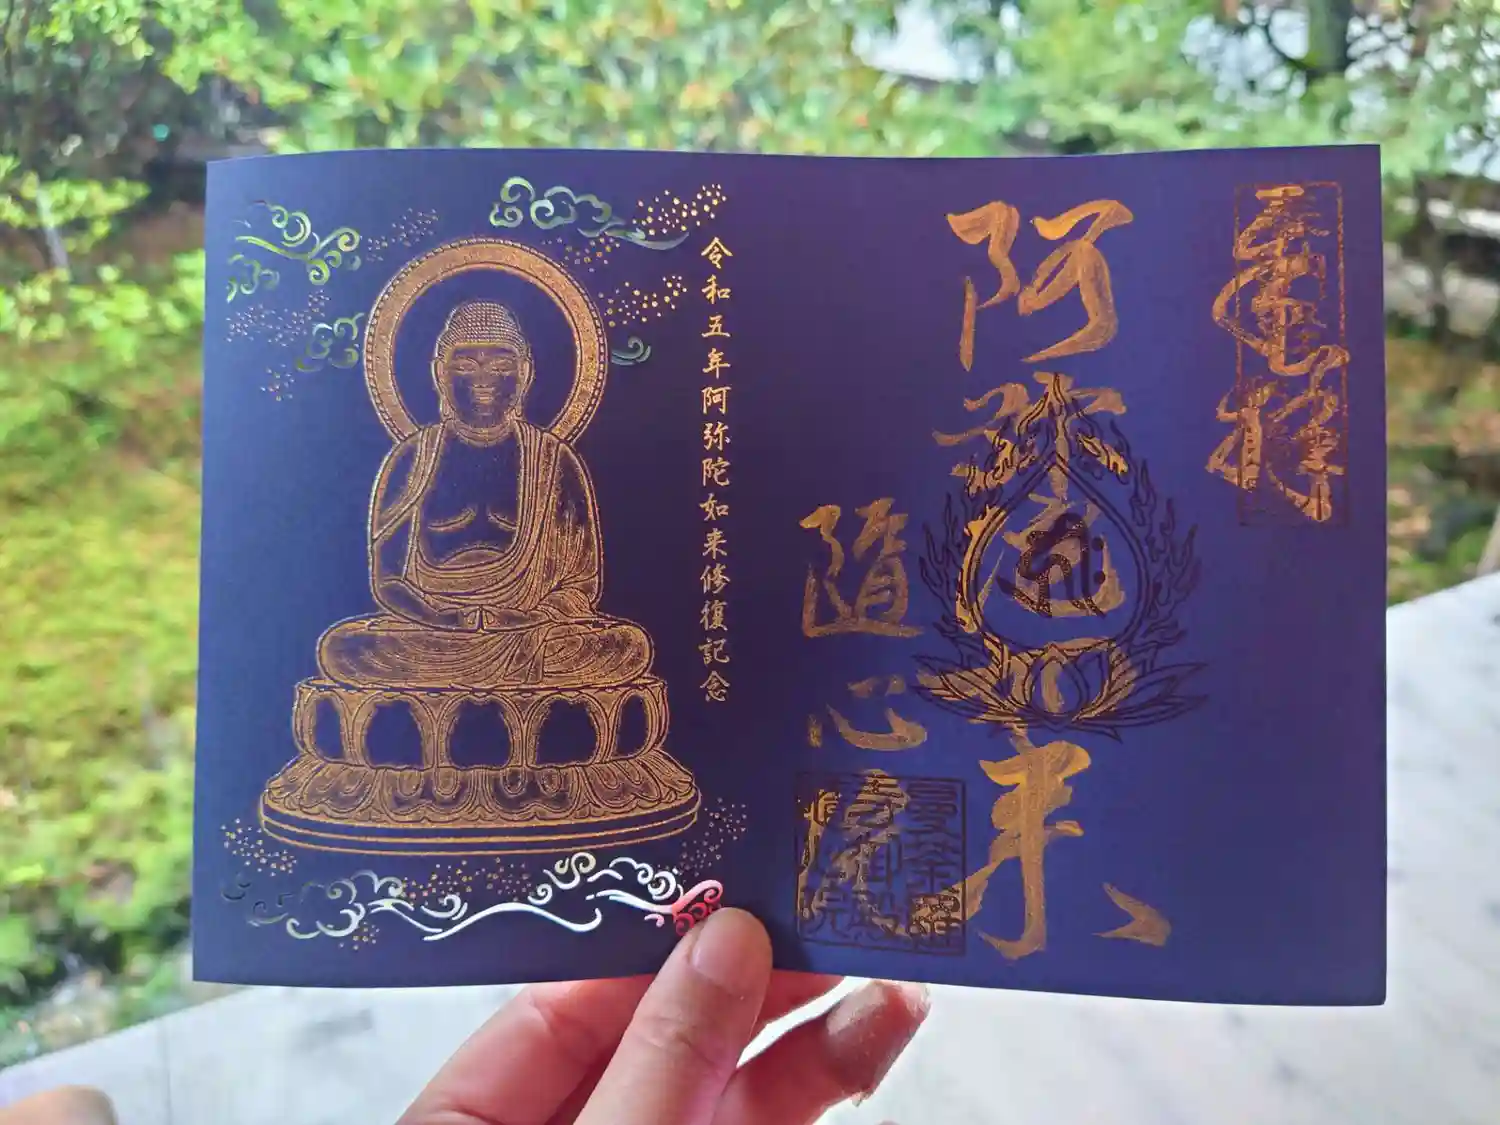 奉拝
阿弥陀如来
隨心院
曼荼羅
寺御殿
隨心院
令和五年阿弥陀如来修復記念